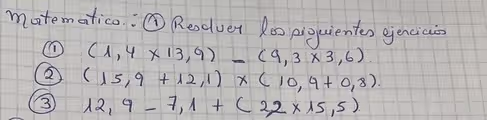 Matematico: ① Resolver los siguientes ejercicios
① (1,4 x 13,9) - (9,3 x 3,6)
② (15,9 + 12,1) x (10,9 + 0,8).
③ 12,9 - 7,1 + (22 x 15,5)